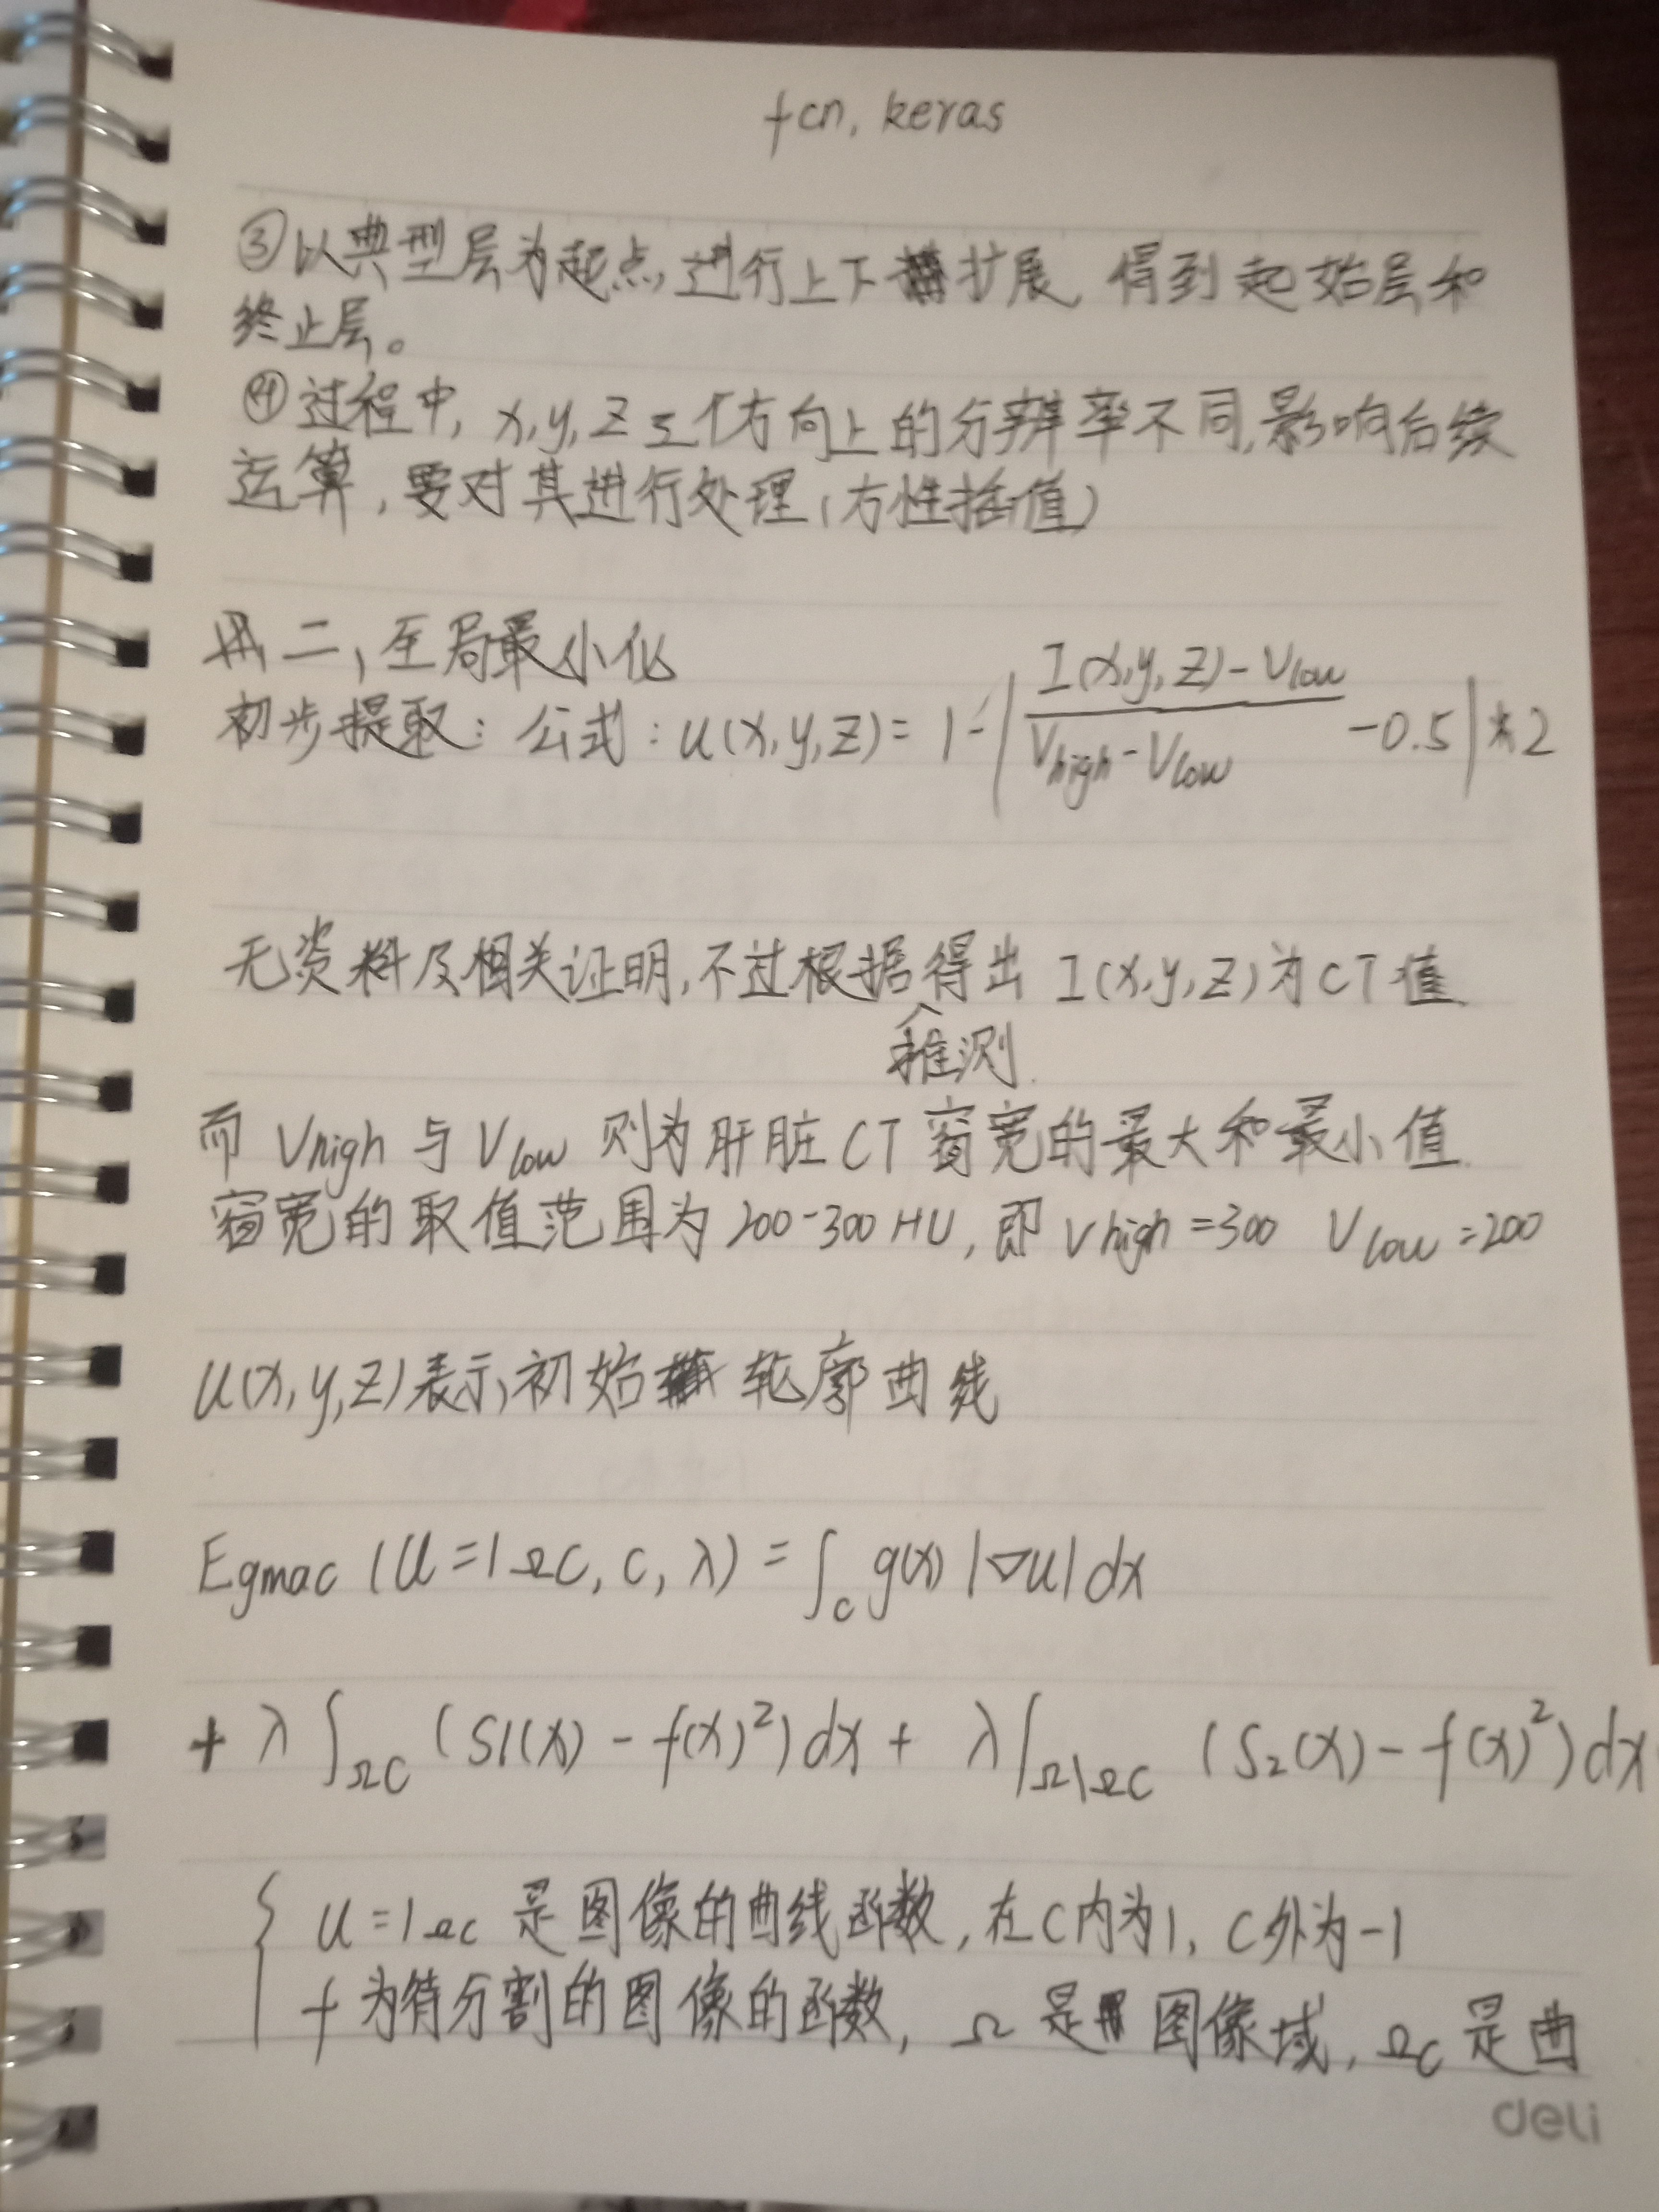 fcn, keras
③以典型层为起点,进行上下扩展,得到起始层和
终止层。
④过程中, x,y,z三个方向上的分辨率不同,影响后续
运算,要对其进行处理(方性插值)
二,全局最小化
初步提取: 公式: u(x,y,z)= 1-|(I(x,y,z)-Vlow)/(Vhigh-Vlow) -0.5|*2
无资料及相关证明,不过根据推测得出 I(x,y,z)为CT值
而 Vhigh 与 Vlow 则为肝脏CT 窗宽的最大和最小值.
窗宽的取值范围为 200-300 HU, 即 Vhigh=300 Vlow=200
u(x,y,z)表示初始轮廓曲线
Egmac (u=1ΩC, C, λ) = ∫c g(x) |∇u| dx
+ λ ∫ΩC (S1(x) - f(x)²) dx + λ ∫Ω\ΩC (S2(x) - f(x)²) dx
{ u=1ΩC 是图像的曲线函数,在C内为1, C外为-1
f为待分割的图像的函数, Ω 是图像域, ΩC 是曲
deli